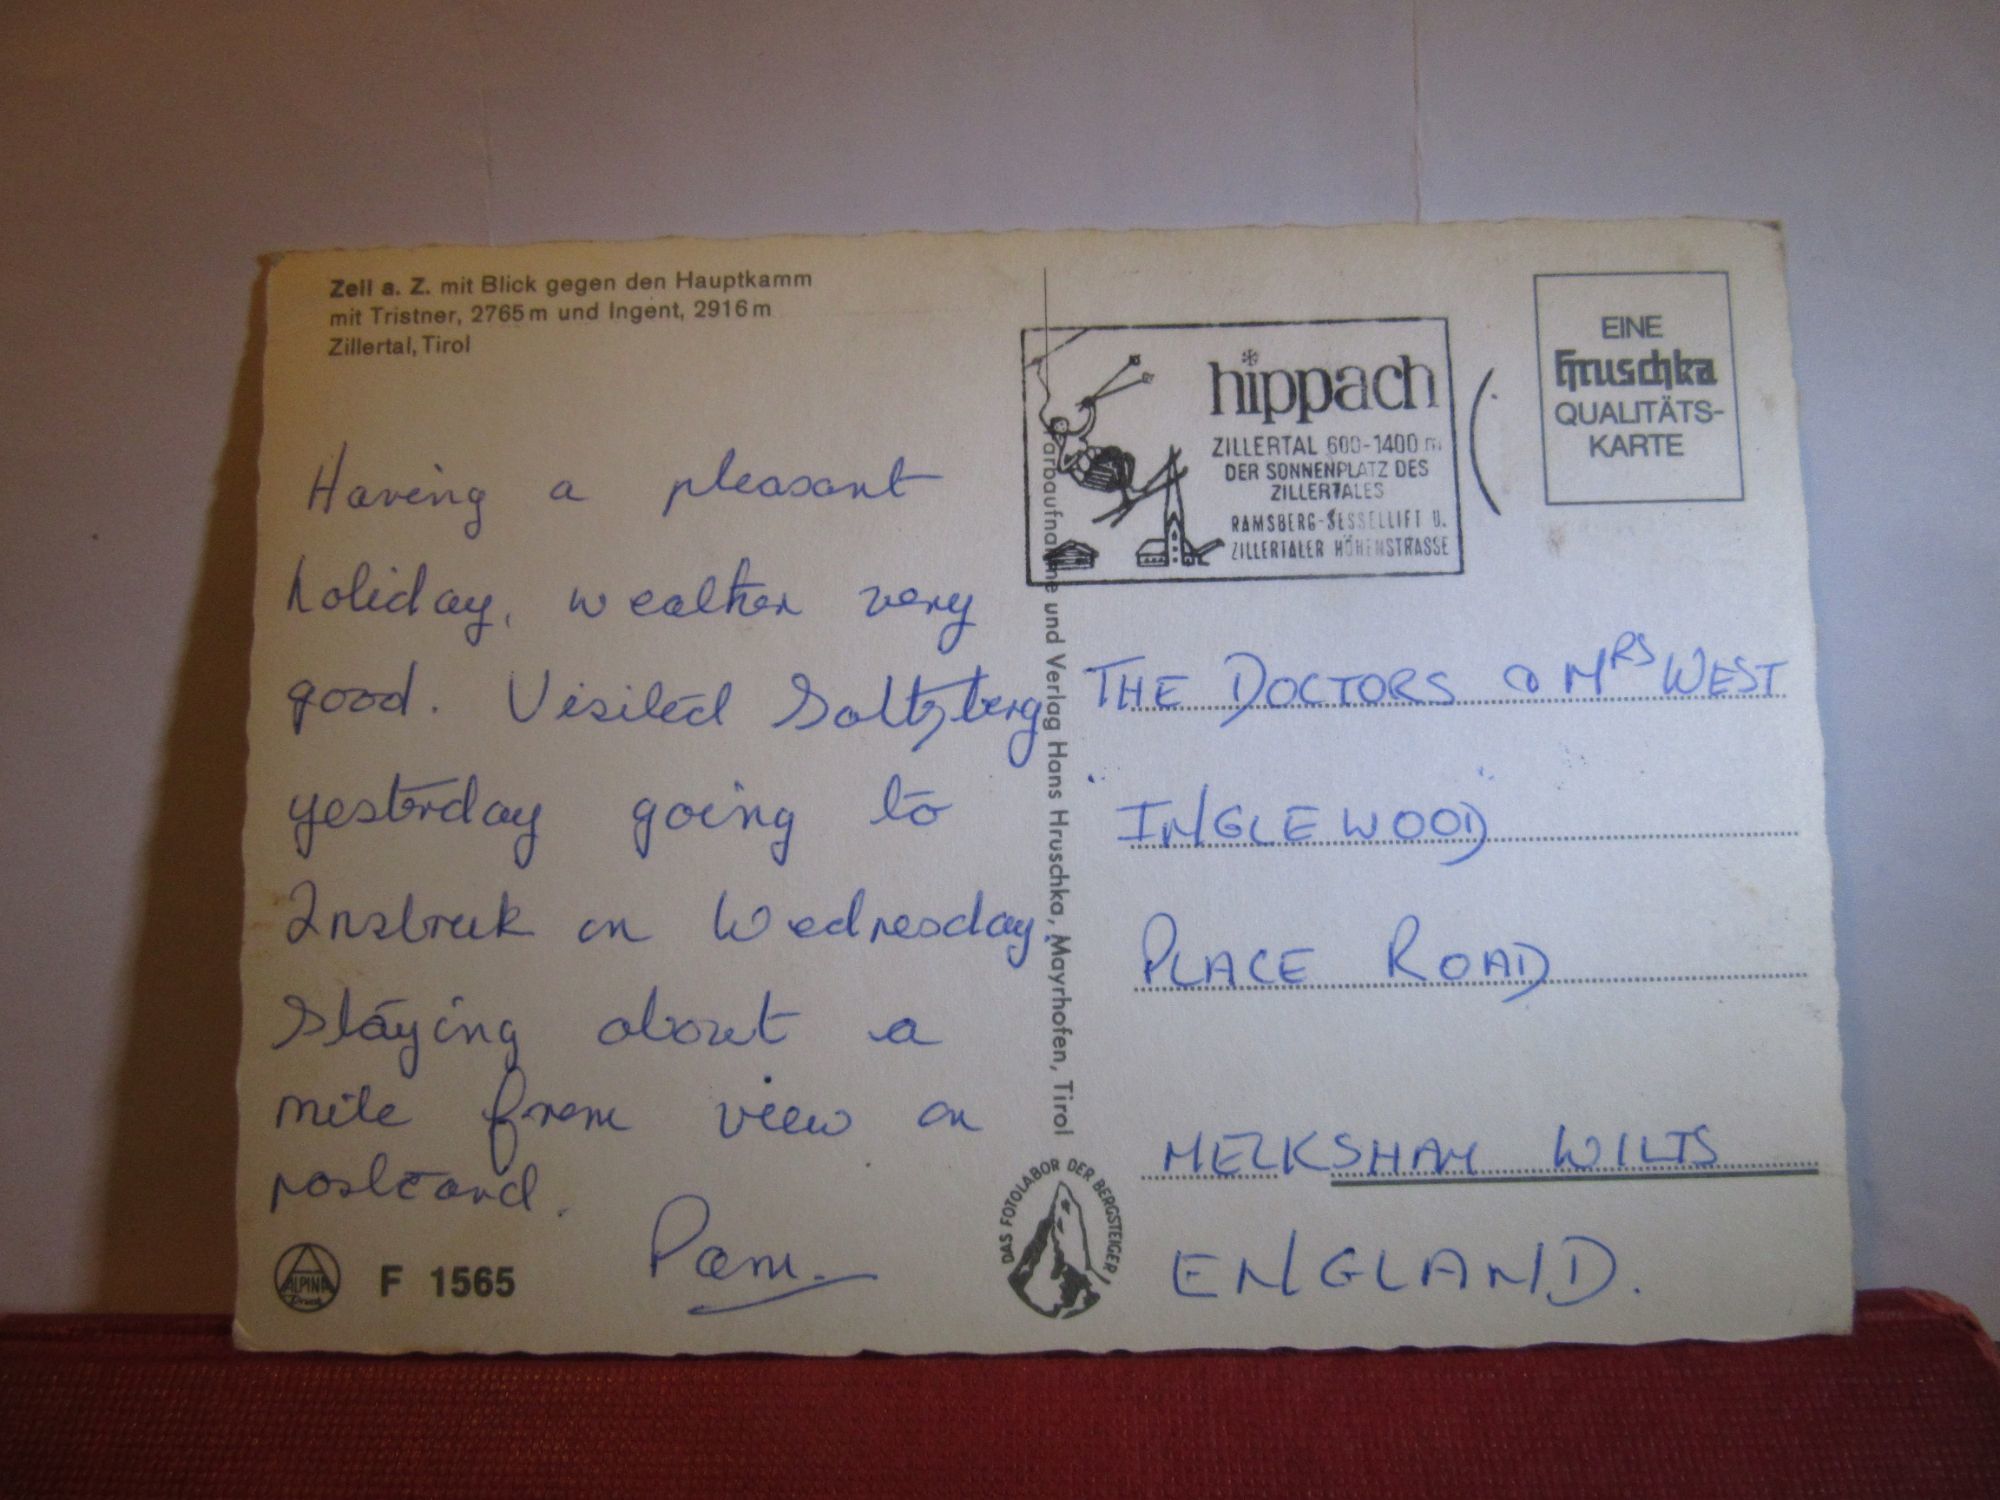 Zell a. Z. mit Blick gegen den Hauptkamm
mit Tristner, 2765 m und Ingent, 2916 m
Zillertal, Tirol
Having a pleasant
holiday, weather very
good. Visited Saltzberg
yesterday going to
Insbruk on Wednesday
Staying about a
mile from view on
postcard.
Pam.
ALPINA
Druck
F 1565
Farbaufnahme und Verlag Hans Hruschka, Mayrhofen, Tirol
DAS FOTOLABOR DER BERGSTEIGER
hippach
ZILLERTAL 600-1400 m
DER SONNENPLATZ DES
ZILLERTALES
RAMSBERG-SESSELLIFT U.
ZILLERTALER HÖHENSTRASSE
EINE
Hruschka
QUALITÄTS-
KARTE
THE DOCTORS & MRS WEST
INGLEWOOD
PLACE ROAD
MELKSHAM WILTS
ENGLAND.